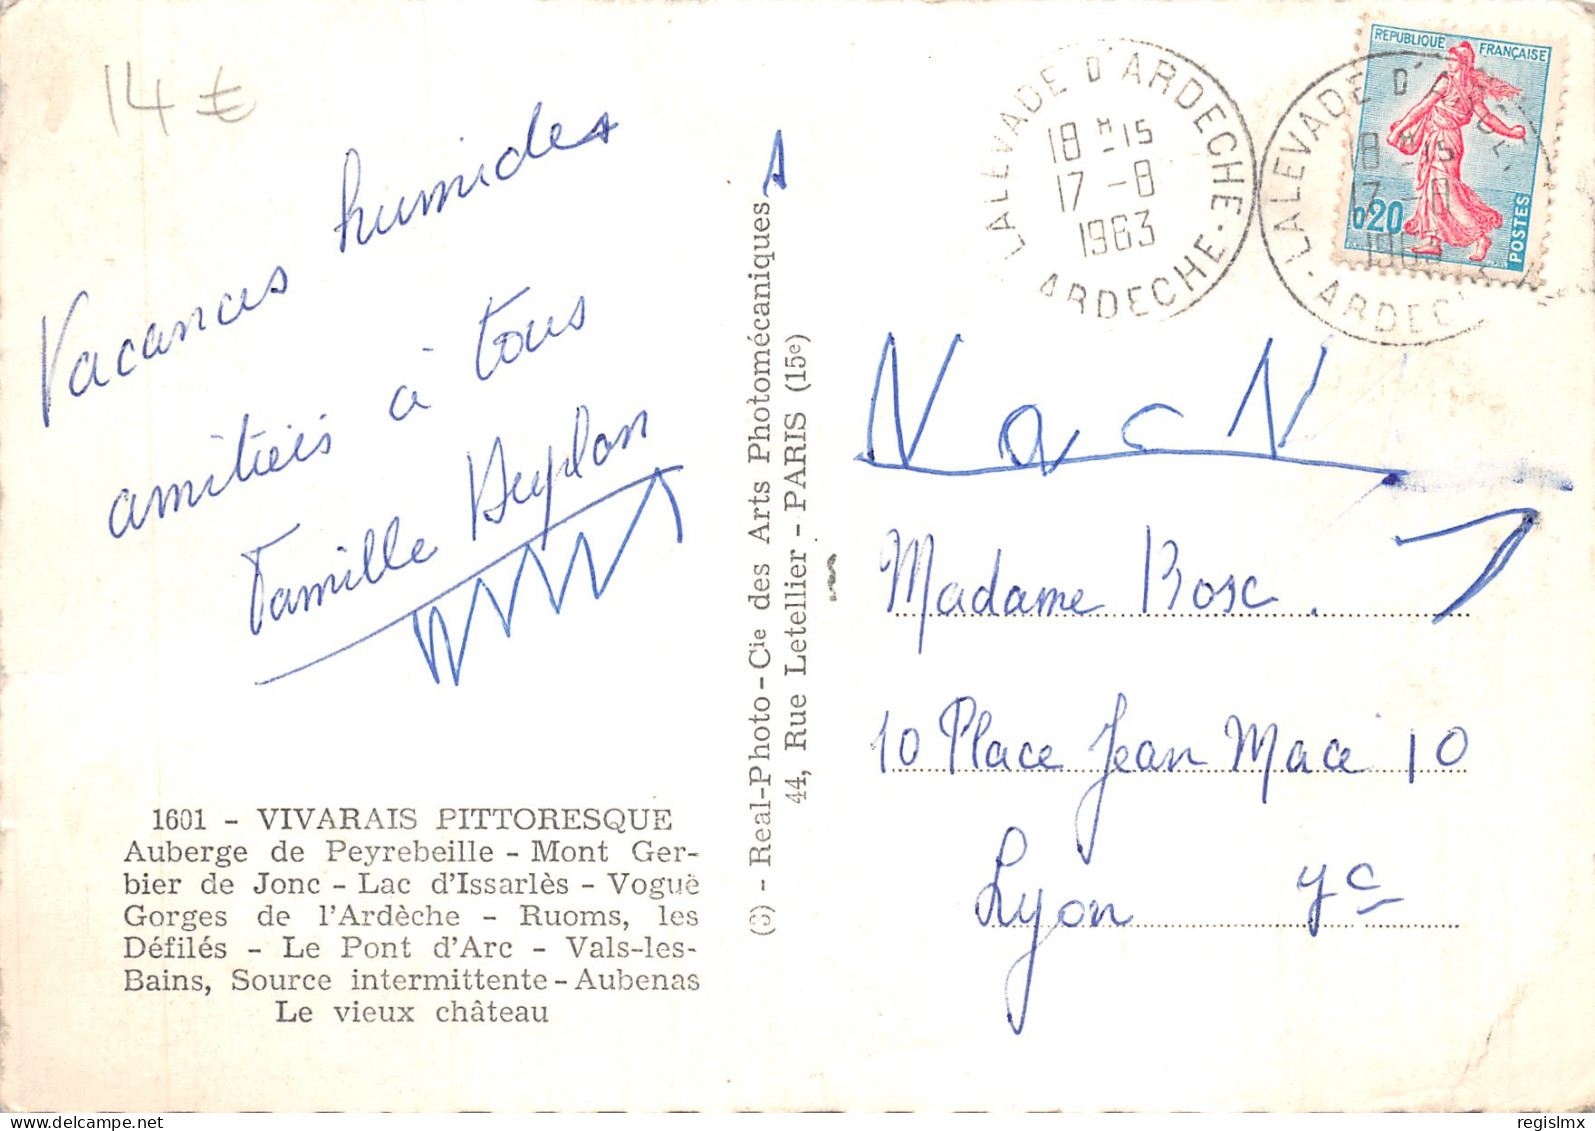 14 €
Vacances humides
amitiés à tous
Famille
1601 - VIVARAIS PITTORESQUE
Auberge de Peyrebeille - Mont Ger-
bier de Jonc - Lac d'Issarlès - Voguë
Gorges de l'Ardèche - Ruoms, les
Défilés - Le Pont d'Arc - Vals-les-
Bains, Source intermittente - Aubenas
Le vieux château
(3) - Real-Photo - Cie des Arts Photomécaniques
44, Rue Letellier - PARIS (15e)
LALEVADE D'ARDECHE
18 H 15
17 - 8
1963
ARDECHE
REPUBLIQUE FRANÇAISE
0,20
POSTES
LALEVADE D'ARDECHE
18 H 15
17 - 8
1963
ARDECHE
Madame Bosc
10 Place Jean Macé 10
Lyon 7e
regislmx
delcampe.net